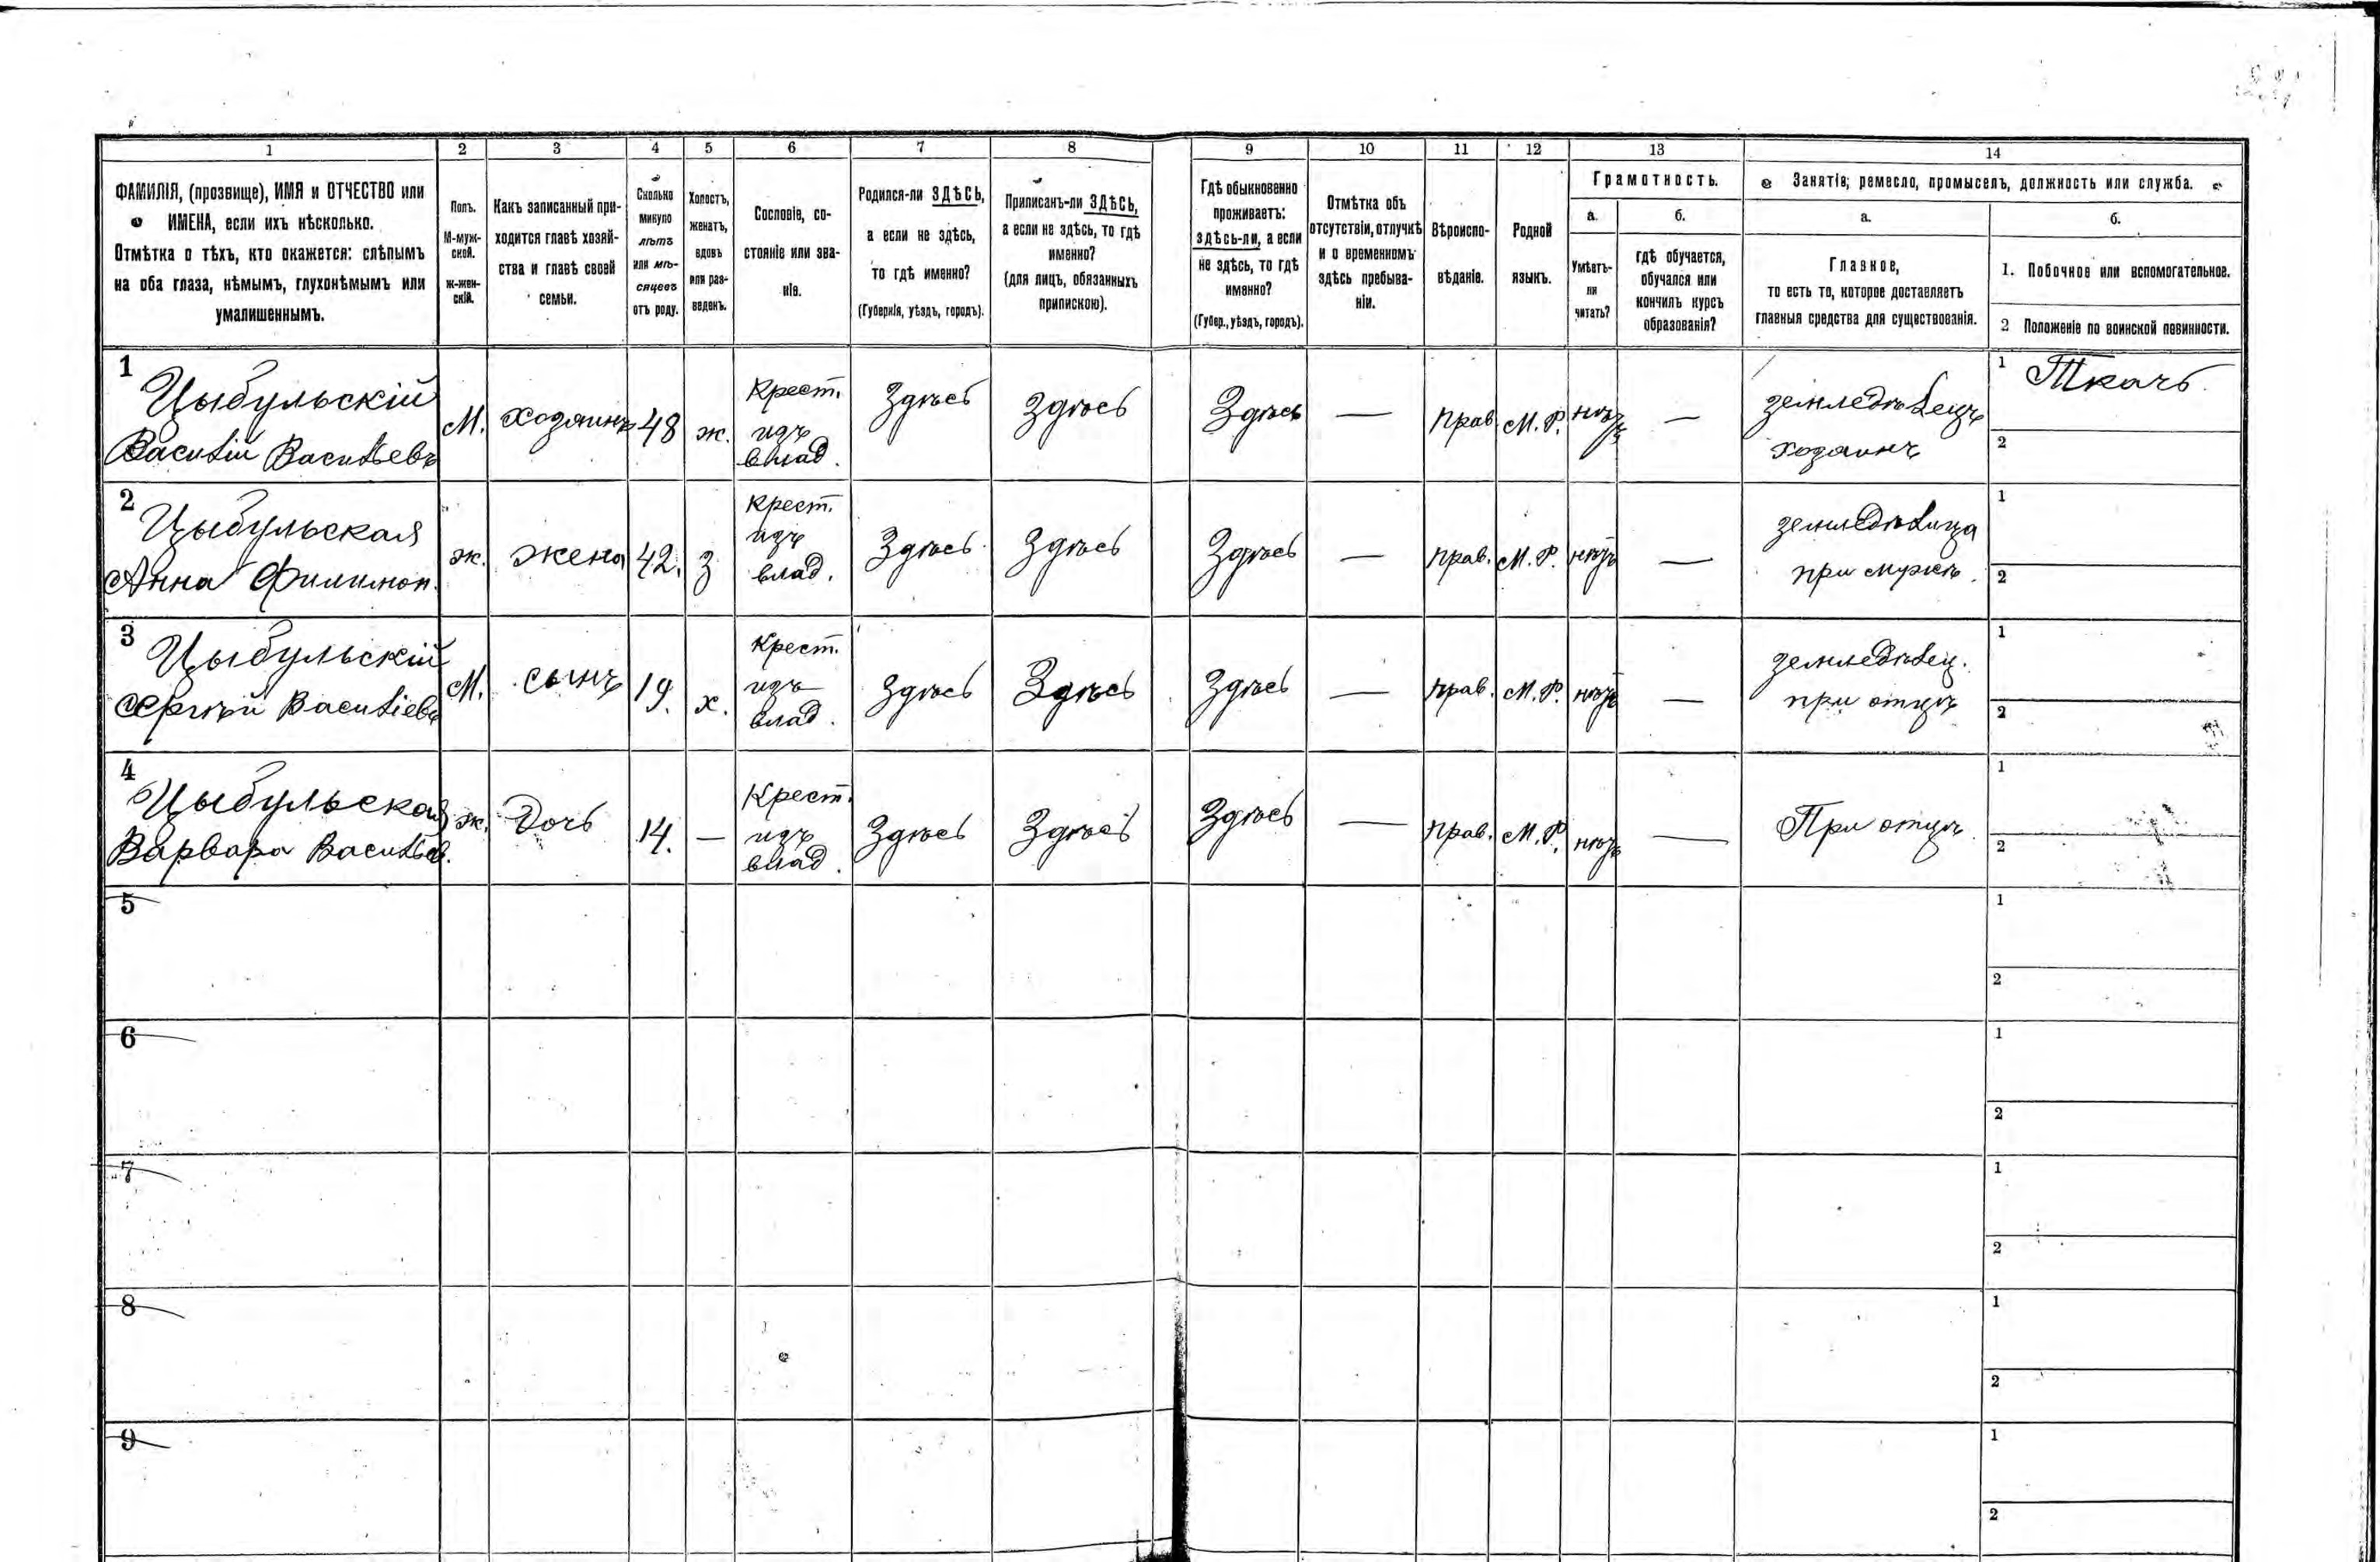 1 2 3 4 5 6 7 8 9 10 11 12 13 14
ФАМИЛІЯ, (прозвище), ИМЯ и ОТЧЕСТВО или
ИМЕНА, если ихъ нѣсколько.
Отмѣтка о тѣхъ, кто окажется: слѣпымъ
на оба глаза, нѣмымъ, глухонѣмымъ или
умалишеннымъ.
Полъ.
М-муж-
ской.
ж-жен-
скій.
Какъ записанный при-
ходится главѣ хозяй-
ства и главѣ своей
семьи.
Сколько
минуло
лѣтъ
или мѣ-
сяцевъ
отъ роду.
Холостъ,
женатъ,
вдовъ
или раз-
веденъ.
Сословіе, со-
стояніе или зва-
ніе.
Родился-ли ЗДѢСЬ,
а если не здѣсь,
то гдѣ именно?
(Губернія, уѣздъ, городъ).
Приписанъ-ли ЗДѢСЬ,
а если не здѣсь, то гдѣ
именно?
(для лицъ, обязанныхъ
припискою).
Гдѣ обыкновенно
проживаетъ:
здѣсь-ли, а если
не здѣсь, то гдѣ
именно?
(Губер., уѣздъ, городъ).
Отмѣтка объ
отсутствіи, отлучкѣ
и о временномъ
здѣсь пребыва-
ніи.
Вѣроиспо-
вѣданіе.
Родной
языкъ.
Грамотность.
а.
Умѣетъ-
ли
читать?
б.
гдѣ обучается,
обучался или
кончилъ курсъ
образованія?
Занятіе, ремесло, промыселъ, должность или служба.
а.
Главное,
то есть то, которое доставляетъ
главныя средства для существованія.
б.
1. Побочное или вспомогательное.
2 Положеніе по воинской повинности.
1
Цыбульскій
Василій Васильевъ
М.
хозяинъ
48
ж.
Крест.
изъ
влад.
Здѣсь
Здѣсь
Здѣсь
—
Прав.
М. Р.
нѣтъ
—
земледѣлецъ
хозяинъ
1 Ткачъ
2
2
Цыбульская
Анна Филимон.
ж.
жена
42.
з
Крест.
изъ
влад.
Здѣсь
Здѣсь
Здѣсь
—
Прав.
М. Р.
нѣтъ
—
земледѣлица
при мужѣ.
1
2
3
Цыбульскій
Сергѣй Василіевъ
М.
сынъ
19.
х.
Крест.
изъ
влад.
Здѣсь
Здѣсь
Здѣсь
—
Прав.
М. Р.
нѣтъ
—
земледѣлец.
при отцѣ
1
2
4
Цыбульская
Варвара Васильев.
ж.
Дочь
14.
—
Крест.
изъ
влад.
Здѣсь
Здѣсь
Здѣсь
—
Прав.
М. Р.
нѣтъ
—
При отцѣ.
1
2
5
1
2
6
1
2
7
1
2
8
1
2
9
1
2